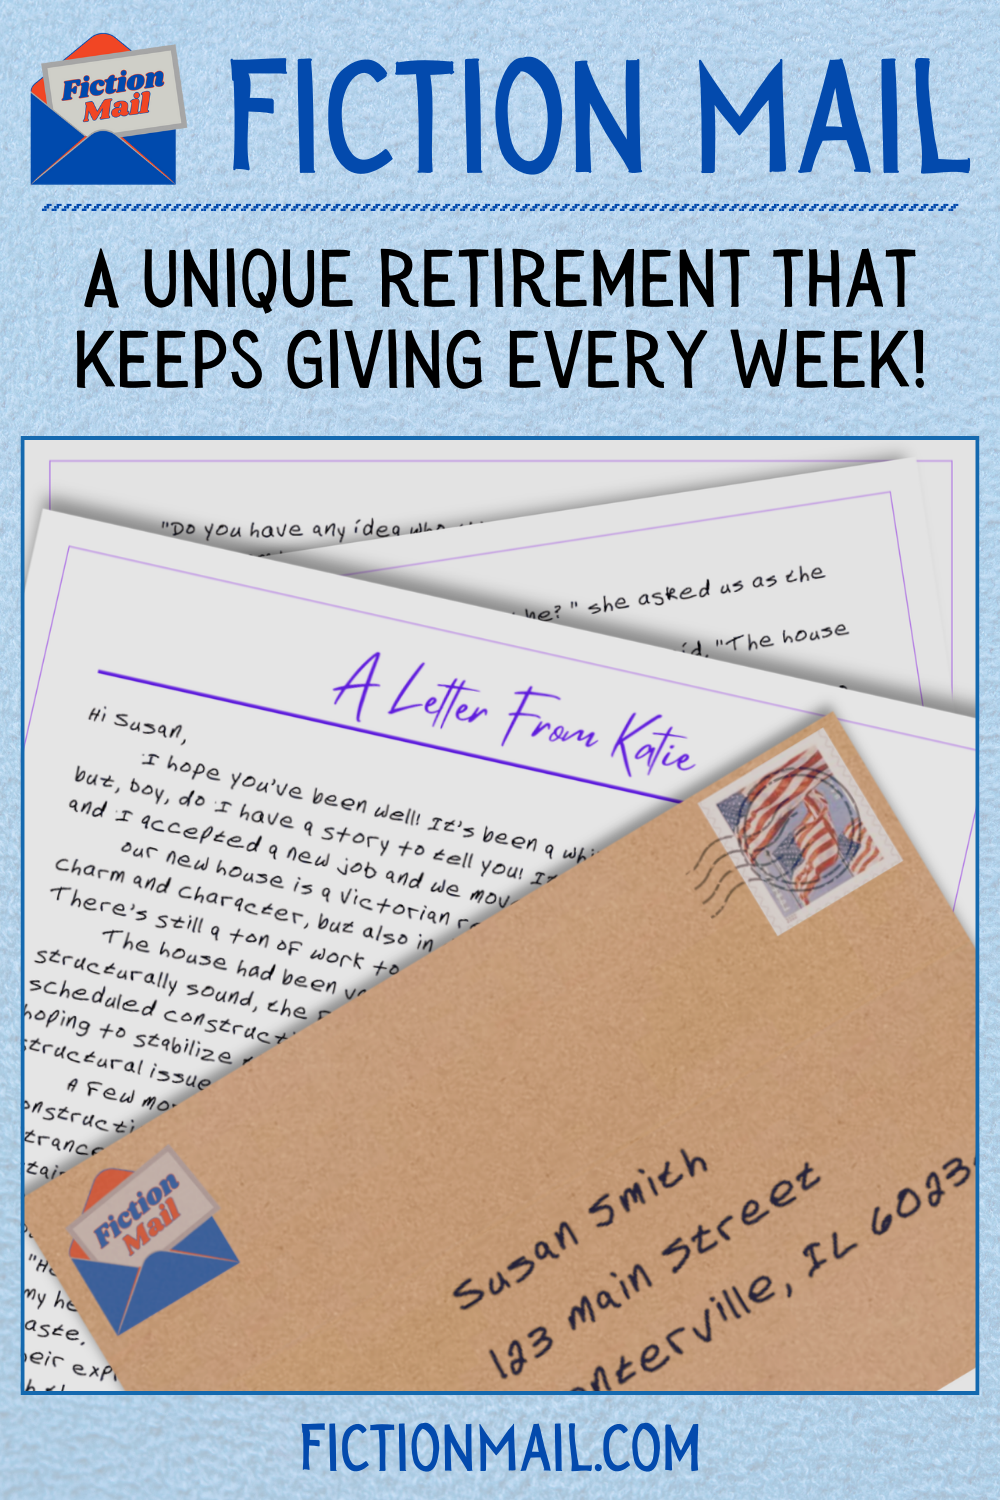 Fiction
Mail
FICTION MAIL
A UNIQUE RETIREMENT THAT
KEEPS GIVING EVERY WEEK!
"Do you have any idea who
he?" she asked us as the
"The house
A Letter From Katie
Hi Susan,
I hope you've been well! It's been a
but, boy, do I have a story to tell you!
and I accepted a new job and we
our new house is a Victorian
charm and character, but also in
There's still a ton of work to
The house had been
structurally sound, the
scheduled
hoping to stabilize
structural issue
A few
my
Fiction
Mail
Susan Smith
123 main Street
IL 6023
FICTIONMAIL.COM